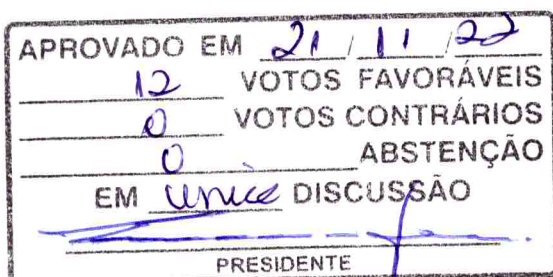 APROVADO EM 21 / 11 / 22
12 VOTOS FAVORÁVEIS
0 VOTOS CONTRÁRIOS
0 ABSTENÇÃO
EM única DISCUSSÃO
PRESIDENTE